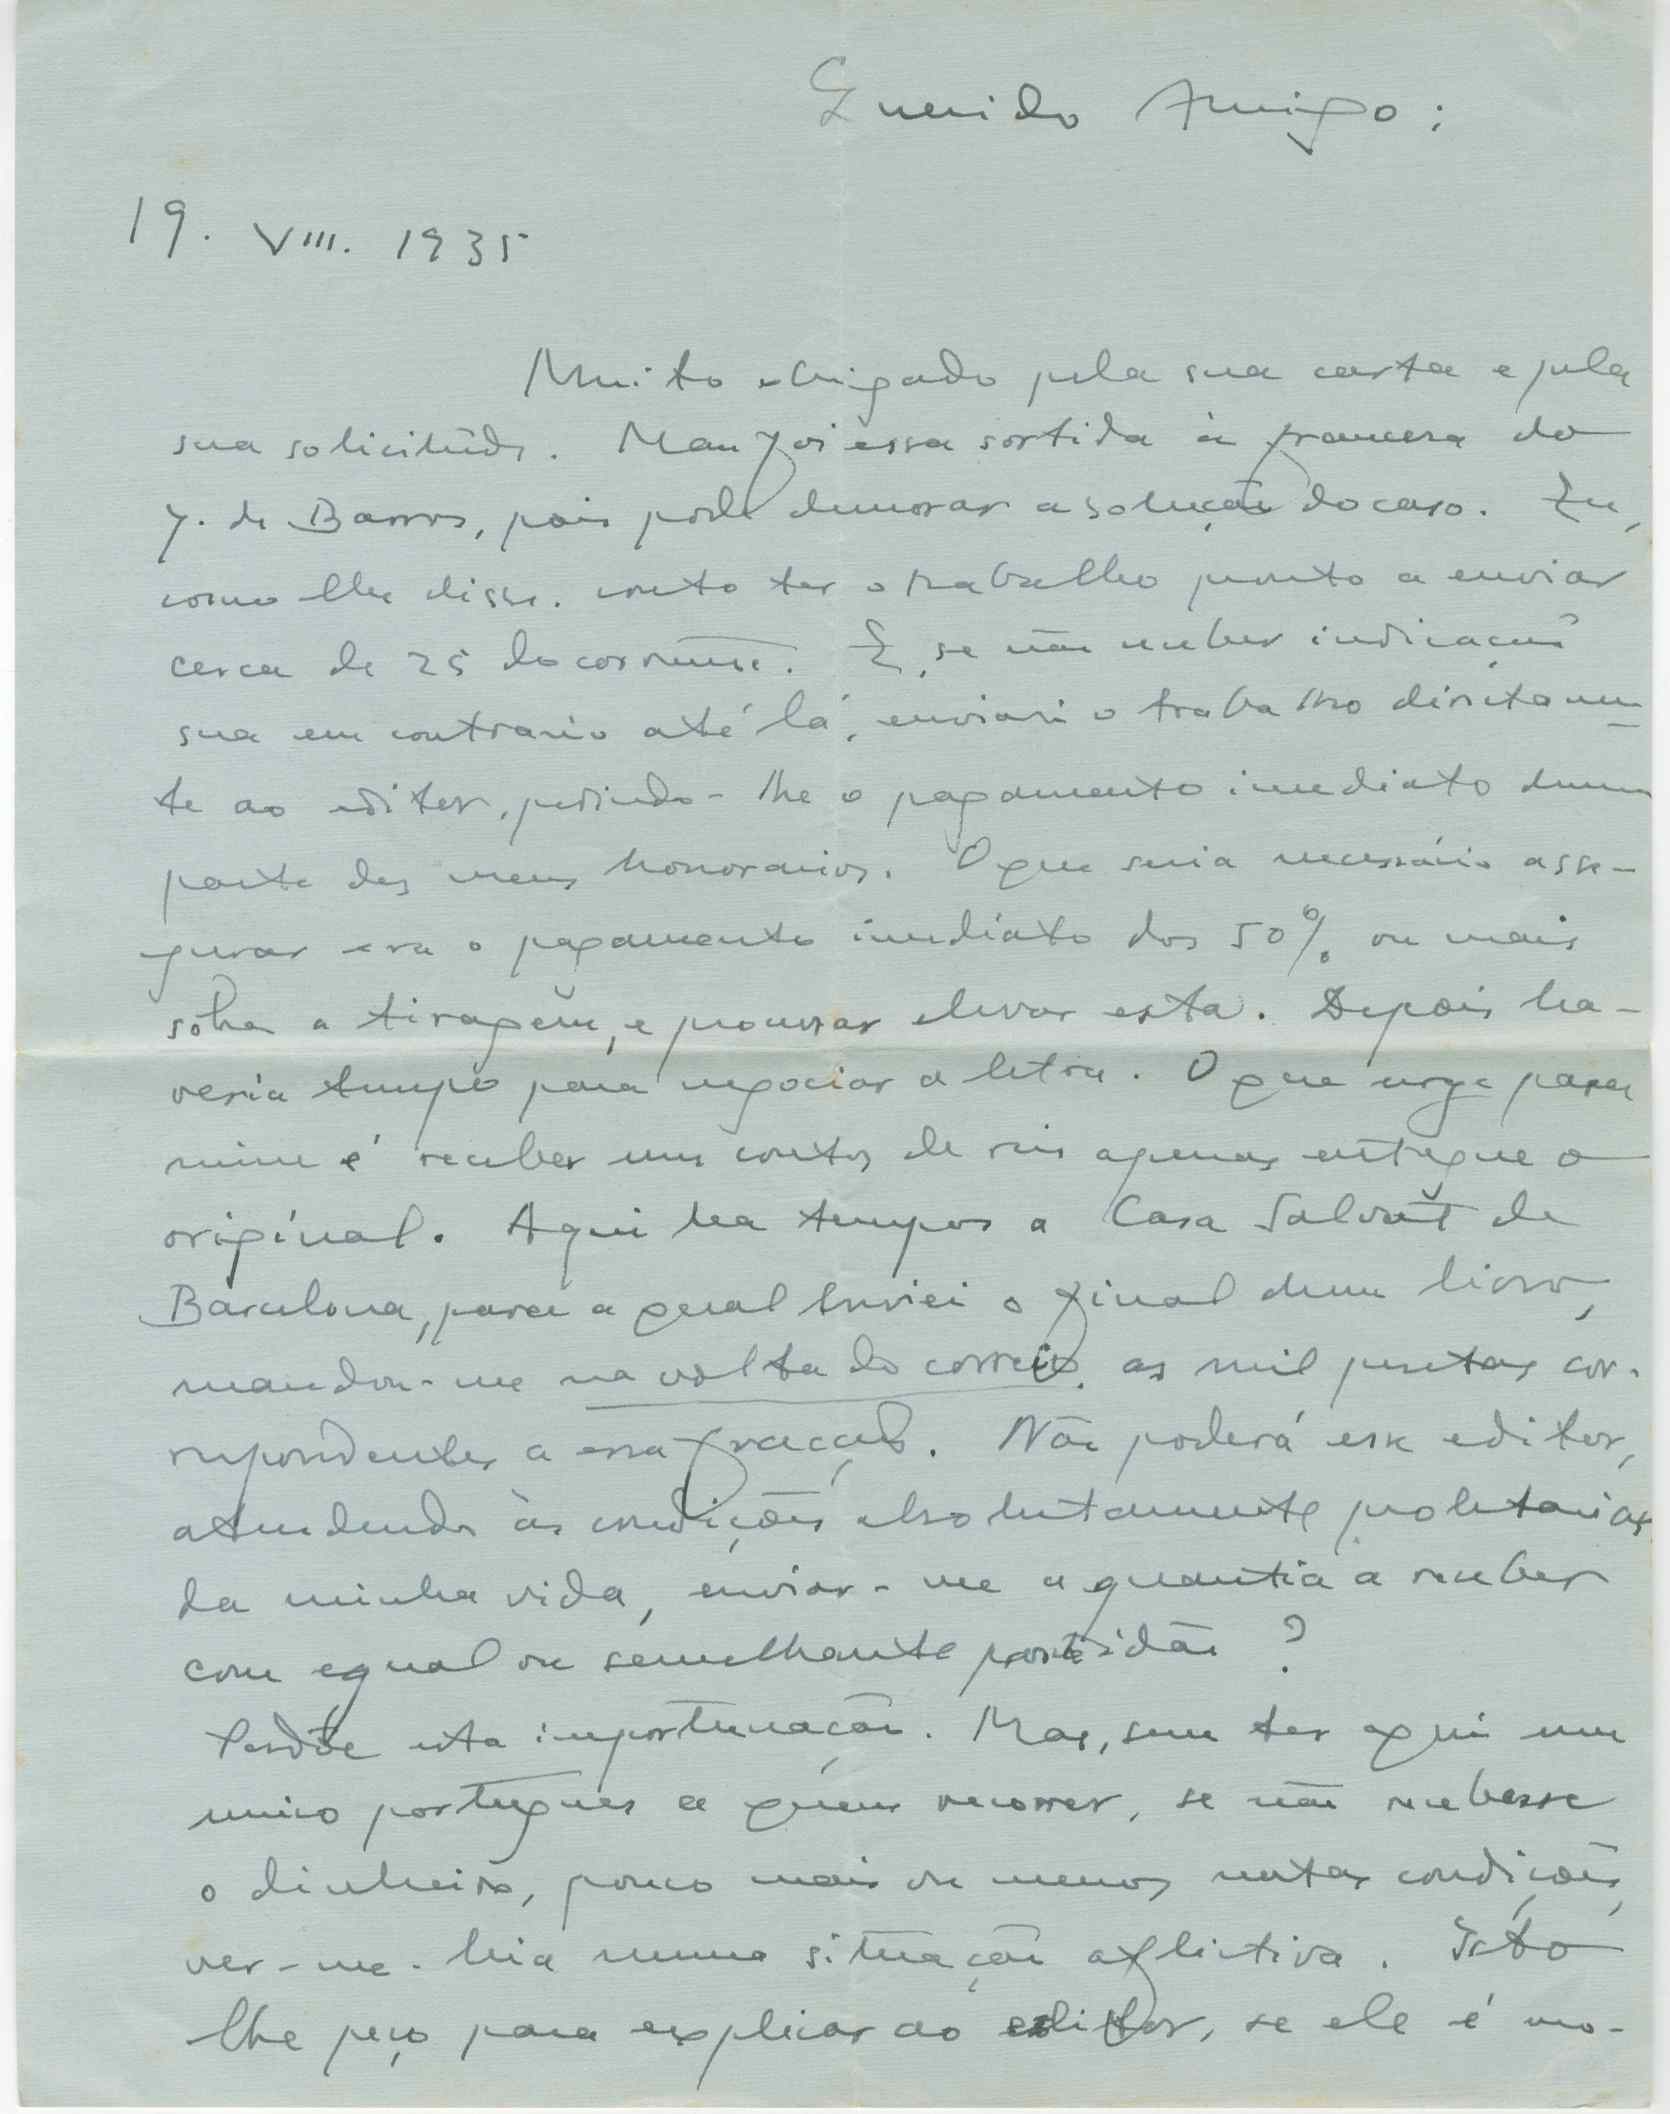 Querido Amigo:
19. VIII. 1935
Muito obrigado pela sua carta e pela
sua solicitude. Mau foi essa sortida à francesa do
J. de Barros, pois pode demorar a solução do caso. Eu,
como lhe disse. conto ter o trabalho pronto a enviar
cerca de 25 do corrente. E, se não receber indicações
sua em contrario até lá, enviarei o trabalho directamen-
te ao editor, pedindo-lhe o pagamento imediato duma
parte dos meus honorarios. O que seria necessário asse-
gurar era o pagamento imediato dos 50% ou mais
sôbre a tiragem, e procurar elevar esta. Depois ha-
veria tempo para negociar a letra. O que urge para
mim é receber uns contos de reis apenas entregue o
original. Aqui ha tempos a Casa Salvat de
Barcelona, para a qual enviei o final dum livro,
mandou-me na volta do correio as mil pesetas cor-
respondentes a essa fracção. Não poderá esse editor,
atendendo às condições absolutamente proletarias
da minha vida, enviar-me a quantia a receber
com egual ou semelhante prontidão?
Perdôe esta importunação. Mas, sem ter aqui um
unico português a quem recorrer, se não recebesse
o dinheiro, pouco mais ou menos nestas condições,
ver-me-hia numa situação aflictiva. Isto
lhe peço para explicar ao editor, se ele é mo-